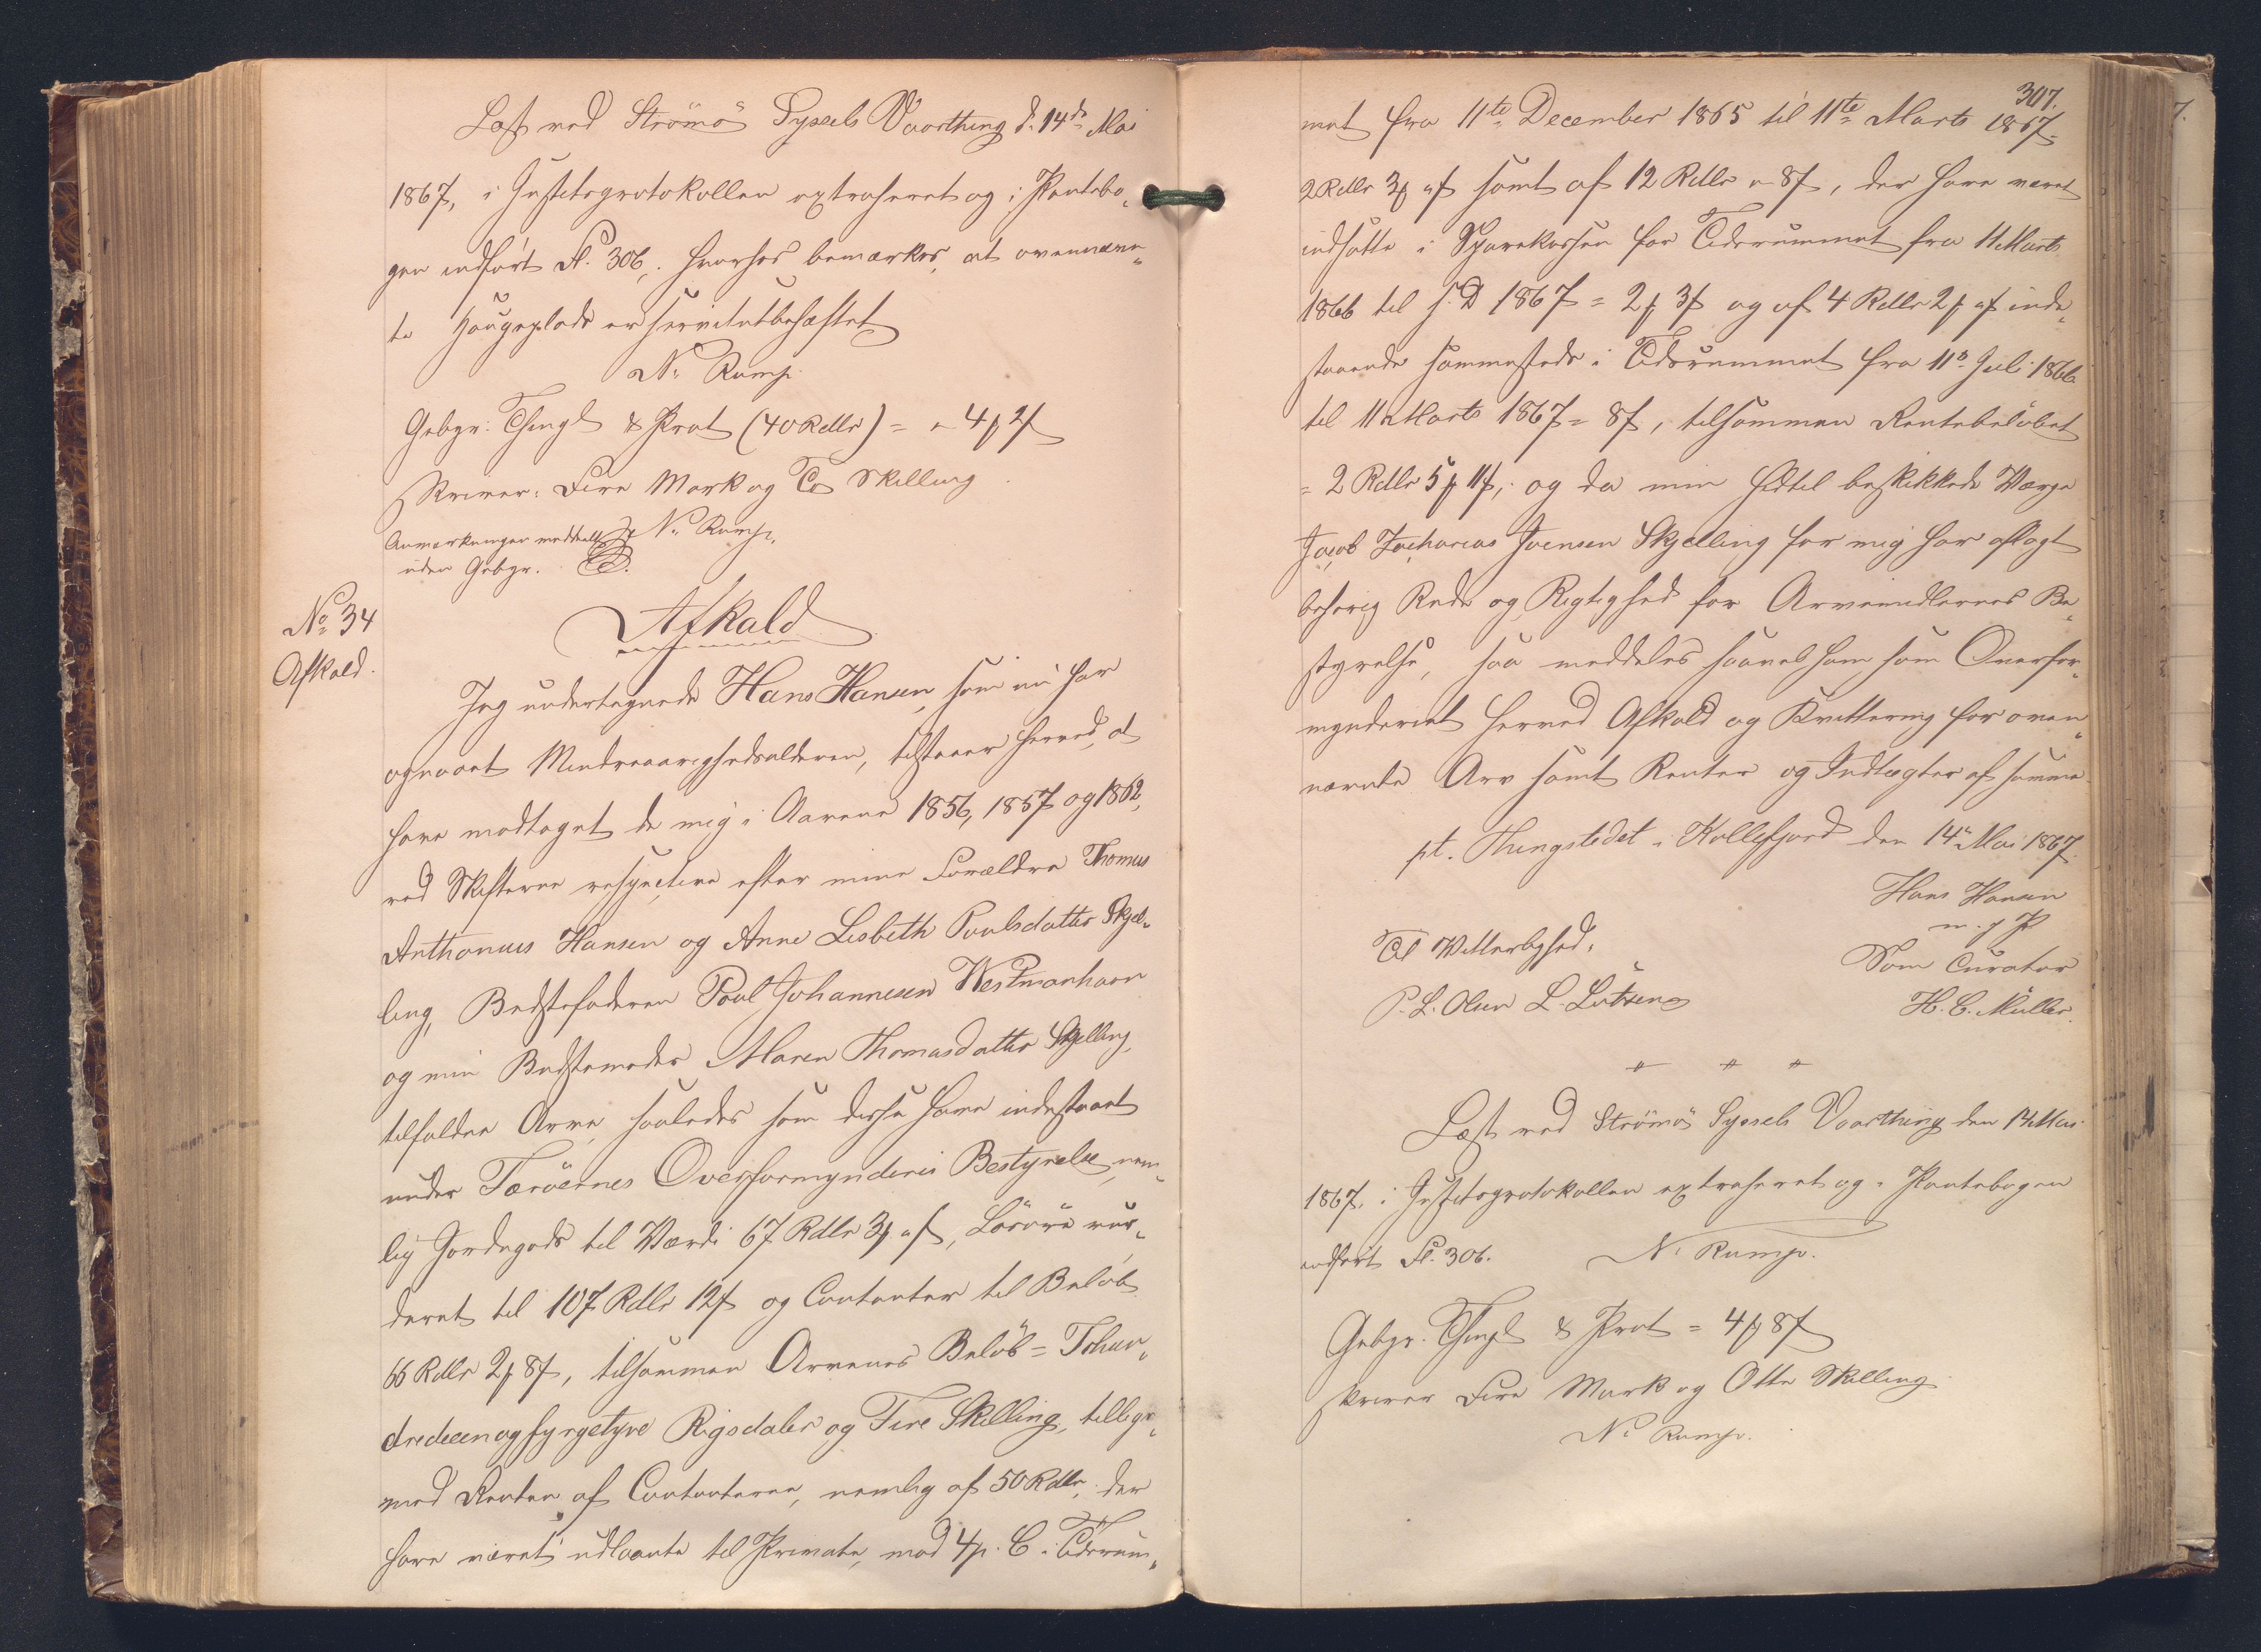 Læst ved Strömö Syssels Vaarthing d. 14de Mai
1867, i Justitsprotokollen extraheret og i Pantebo-
gen indført Fl. 306, hvorhos bemærkes, at ovennævn-
te Haugeplads er servitutbehæftet
N. Rump.
Gebyr: Thingl & Prot (40 Rdlr) = " 4 ꝑ 2 ß
skriver: Fire Mark og To Skilling
N. Rump.
Anmærkningen meddelt
uden Gebyr.
No 34
Afkald.
Afkald
Jeg undertegnede Hans Hansen, som nu har
opnaaet Mindreaarighedsalderen, tilstaaer herved, at
have modtaget de mig i Aarene 1856, 1857 og 1862,
ved Skifterne respective efter mine Forældre Thomas
Anthonius Hansen og Anne Lisbeth Poulsdatter Skjel-
ling, Bedstefaderen Poul Johannesen Westmanhavn
og min Bedstemoder Maren Thomasdatter Skjelling,
tilfaldne Arve, saaledes som disse have indestaaet
under Færöernes Overformynderis Bestyrelse, nem-
lig Jordegods til Værdi 67 Rdlr 3 ꝑ " ß, Lösöre vur-
deret til 107 Rdlr 12 ß og Contanter til Beløb
66 Rdlr 2 ꝑ 8 ß, tilsammen Arvenes Beløb = Tohun-
dredeenogfyrgetyve Rigsdaler og Fire Skilling, tillige
med Renten af Contanterne, nemlig af 50 Rdlr, der
have været udlaante til Private, mod 4 p. C. i Tidsrum-
307.
met fra 11te December 1865 til 11te Marts 1867 =
2 Rdlr 3 ꝑ " ß samt af 12 Rdlr " 8 ß, der have været
indsatte i Sparekassen for Tidsrummet fra 11 Marts
1866 til s. D 1867 = 2 ꝑ 3 ß og af 4 Rdlr 2 ꝑ " ß inde-
staaende sammesteds i Tidsrummet fra 11te Juli 1866
til 11te Marts 1867 = 8 ß, tilsammen Rentebeløbet
= 2 Rdlr 5 ꝑ 11 ß; og da min hidtil beskikkede Værge
Jacob Zacharias Joensen Skjelling for mig har aflagt
behørig Rede og Rigtighed for Arvemidlernes Be-
styrelse, saa meddeles saavel ham som Overfor-
mynderiet herved Afkald og Kvittering for oven-
nævnte Arv samt Renter og Indtægter af samme.
pt. Thingstedet i Kollefjord den 14de Mai 1867.
Hans Hansen
m. f. P
Til Vitterlighed:
Som Curator
P. L. Olsen L. Lützen
H. C. Müller.
" " "
Læst ved Strömö Syssels Vaarthing den 14 Mai
1867, i Justitsprotokollen extraheret og i Pantebogen
indført Fl. 306.
N. Rump.
Gebyr. Thingl & Prot = 4 ꝑ 8 ß
skriver Fire Mark og Otte Skilling
N. Rump.